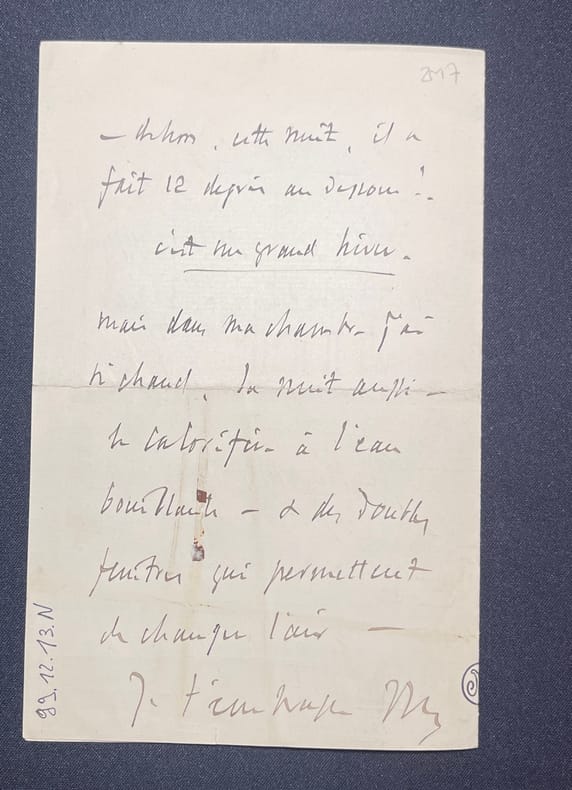 2517
– dehors, cette nuit, il a
fait 12 degrés au dessous !.
c'est un grand hiver.
mais dans ma chambre j'ai
si chaud, la nuit aussi –
le calorifère à l'eau
bouillante – & des doubles
fenêtres qui permettent
de changer l'air –
Je t'embrasse
99.12.13.N